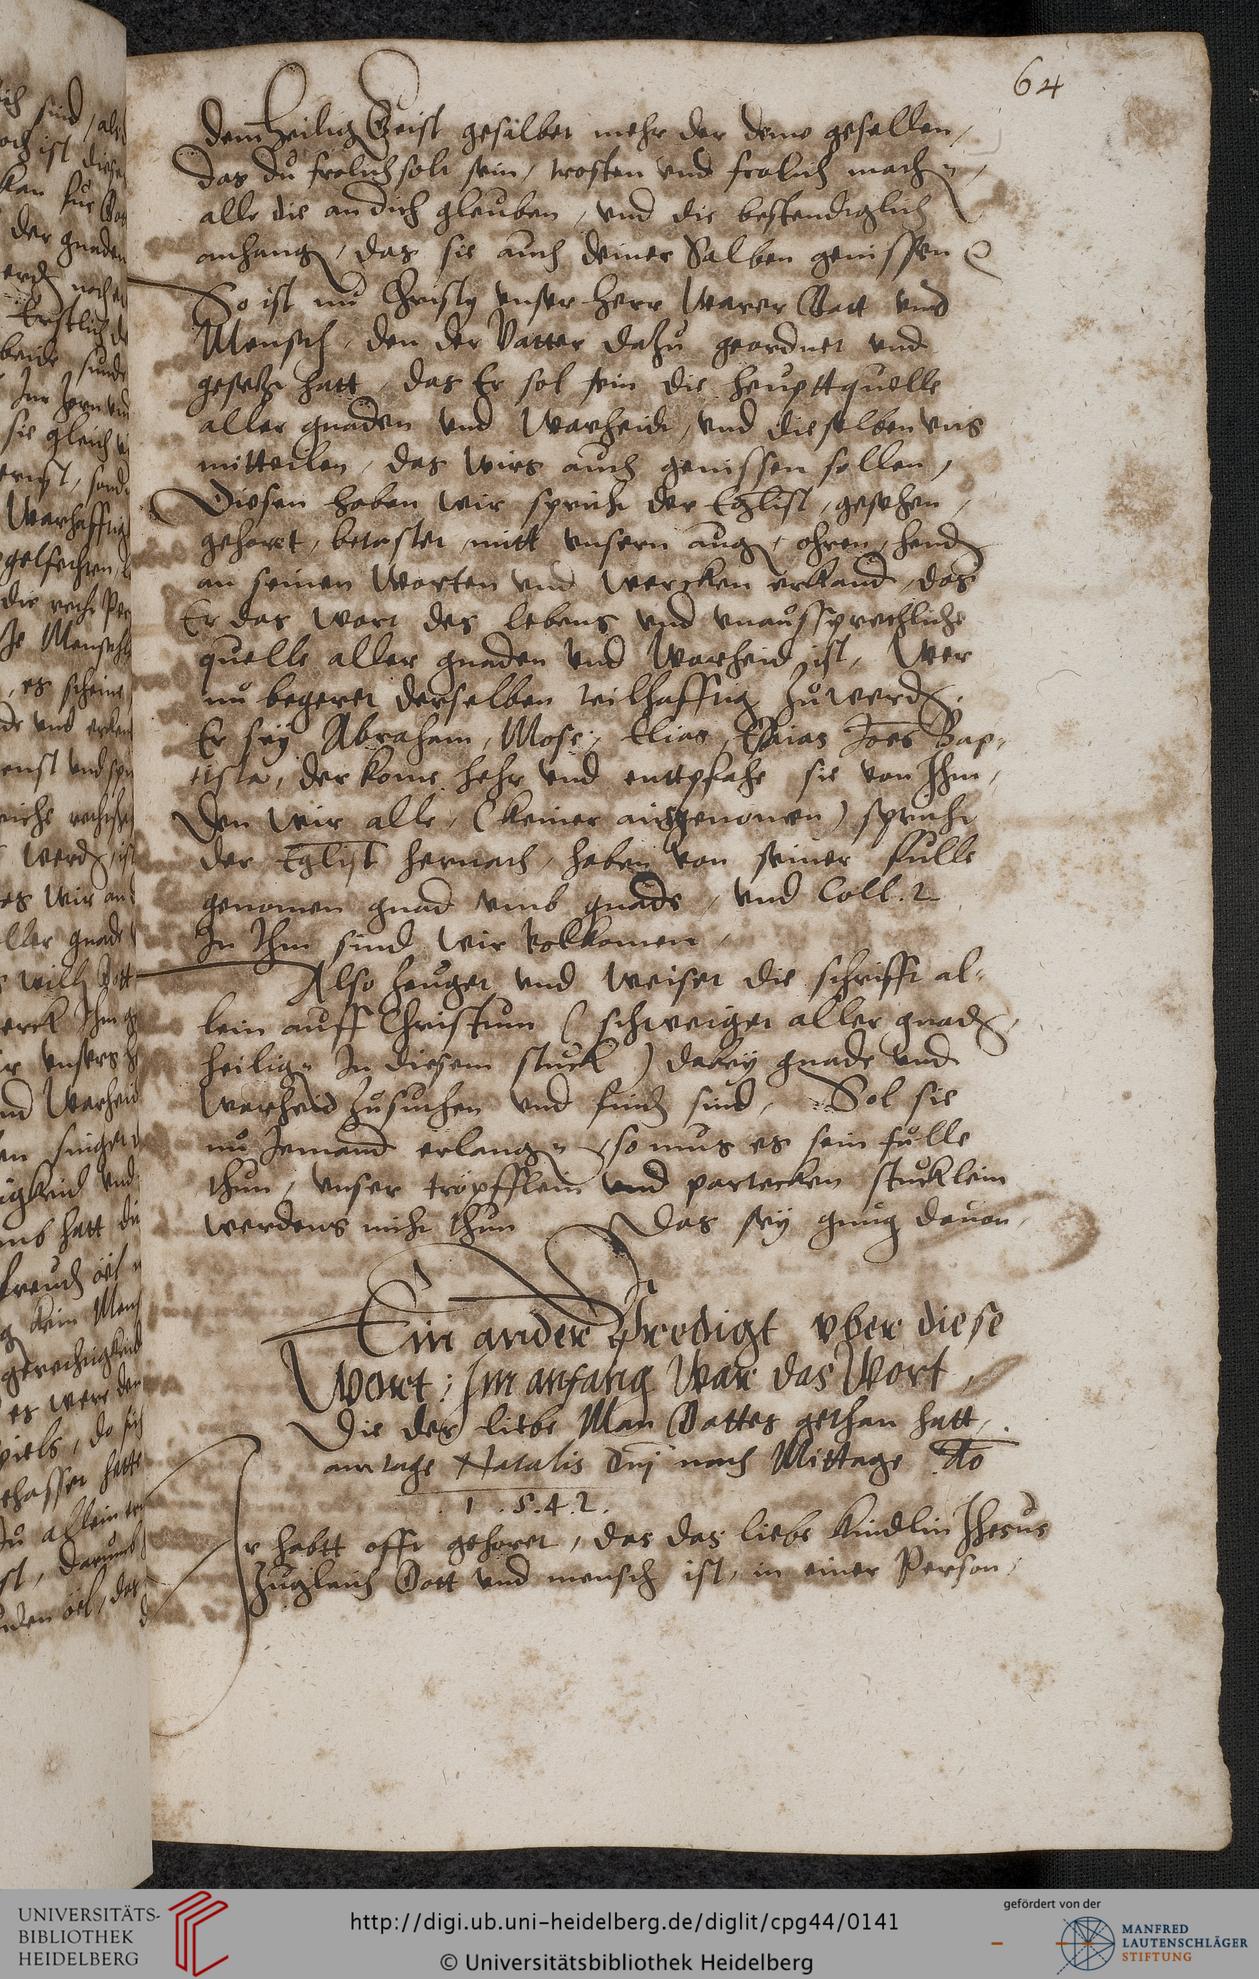 64
dem heilig Geist gesalbet mehr der deine gesellen,
das du frolich solt sein, trosten vnd frolich machn,
alle die an dich gleuben, vnd dir bestendiglich
anhangn, das sie auch deiner Salben genissen
So ist nu Christus vnser Herr Warer Gott vnd
Mensch, den der Vatter dazu geordnet vnd
gesetzt hatt, das Er sol sein die heupttquelle
aller gnaden vnd Warheidt, vnd dieselben vns
mitteilen, das wirs auch genissen sollen,
Diesen haben wir spricht der Eglist, gesehen,
gehoret, betastet mitt vnsern augn, ohren, hend
an seinen Worten vnd Wercken erkand, das
Er das Wort des lebens vnd vnaussprechliche
quelle aller gnaden vnd Warheid ist, Wer
nu begeret derselben teilhafftig zuwerdn.
Er sey Abraham, Mose, Elias, Esaias Joes Bap-
tista, der kome hehr vnd enttpfahe sie von Ihm,
Den wir alle, (keiner ausgenomen) spricht
der Eglist hernach, haben von seiner fulle
genomen gnad vmb gnade, vnd Coll. 2
In Ihm sind wir volkomen,
Also zeuget vnd Weiset die schrifft al-
lein auff Christum (schweiget aller gnadn,
heilign In diesem stuck) da bey gnade vnd
Warheid zusuchen vnd find sind, Sol sie
nu Jemand erlangn, so mus es sein fulle
thun, vnser tropfflein vnd partecken stucklein
werdens nicht thun Das sey gnug dauon,
Ein ander Predigt vber diese
Wort: Im anfang War das Wort,
Die der liebe Man Gottes gethan hatt,
am tage Natalis Dnj nach Mittage Ao
1.5.4.2.
Ir habtt offt gehoret, das das liebe kindlin Jhesus
Zugleich Gott vnd mensch ist, in einer Person,
UNIVERSITÄTS-
BIBLIOTHEK
HEIDELBERG
http://digi.ub.uni-heidelberg.de/diglit/cpg44/0141
© Universitätsbibliothek Heidelberg
gefördert von der
MANFRED
LAUTENSCHLÄGER
STIFTUNG